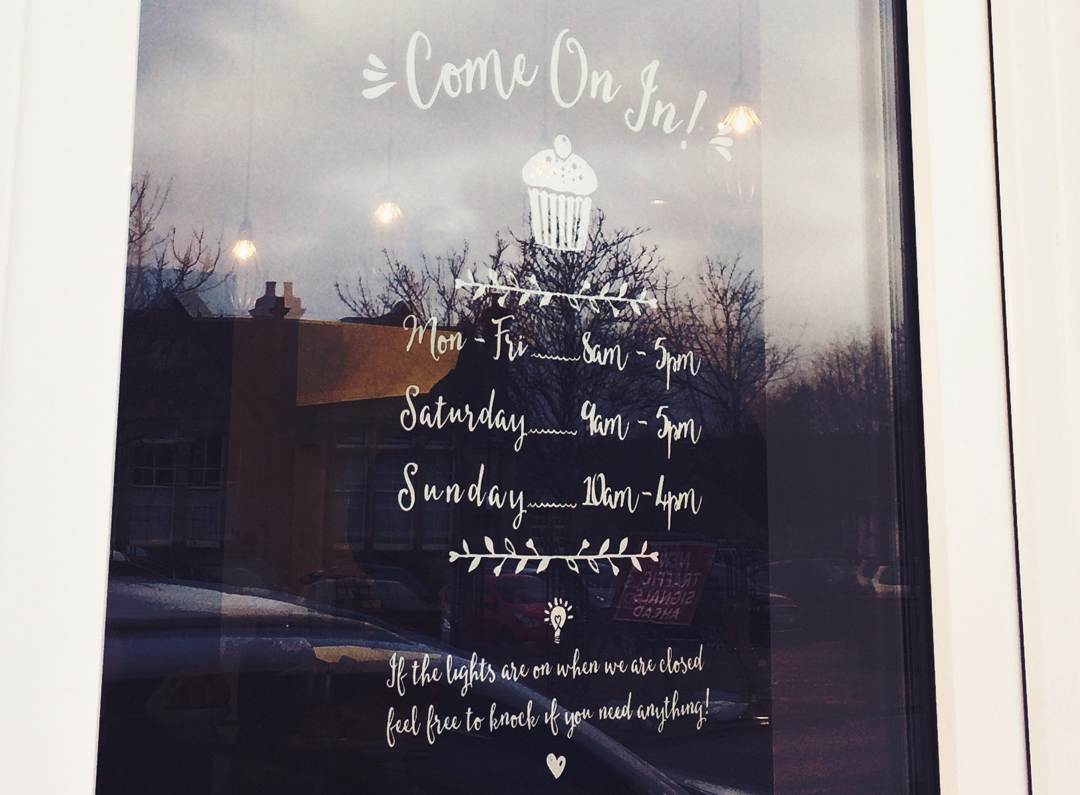 Come On In!
Mon - Fri 8am - 5pm
Saturday 9am - 5pm
Sunday 10am - 4pm
NEW
TRAFFIC
SIGNALS
AHEAD
If the lights are on when we are closed
feel free to knock if you need anything!